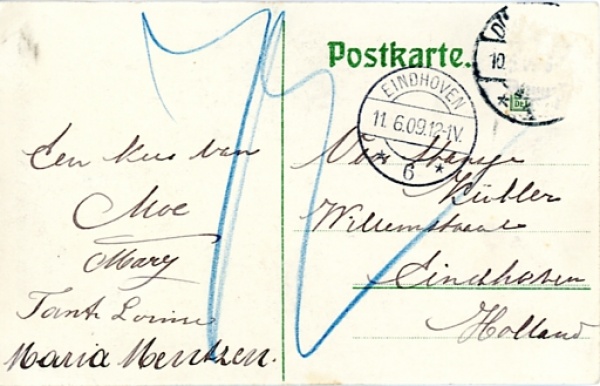 Postkarte.
EINDHOVEN
11. 6.09.12-1V.
6
10.
Een kus van
Moe
Mary
Tante
Maria Mentzen.
Kübler
Willemstraat
Eindhoven
Holland